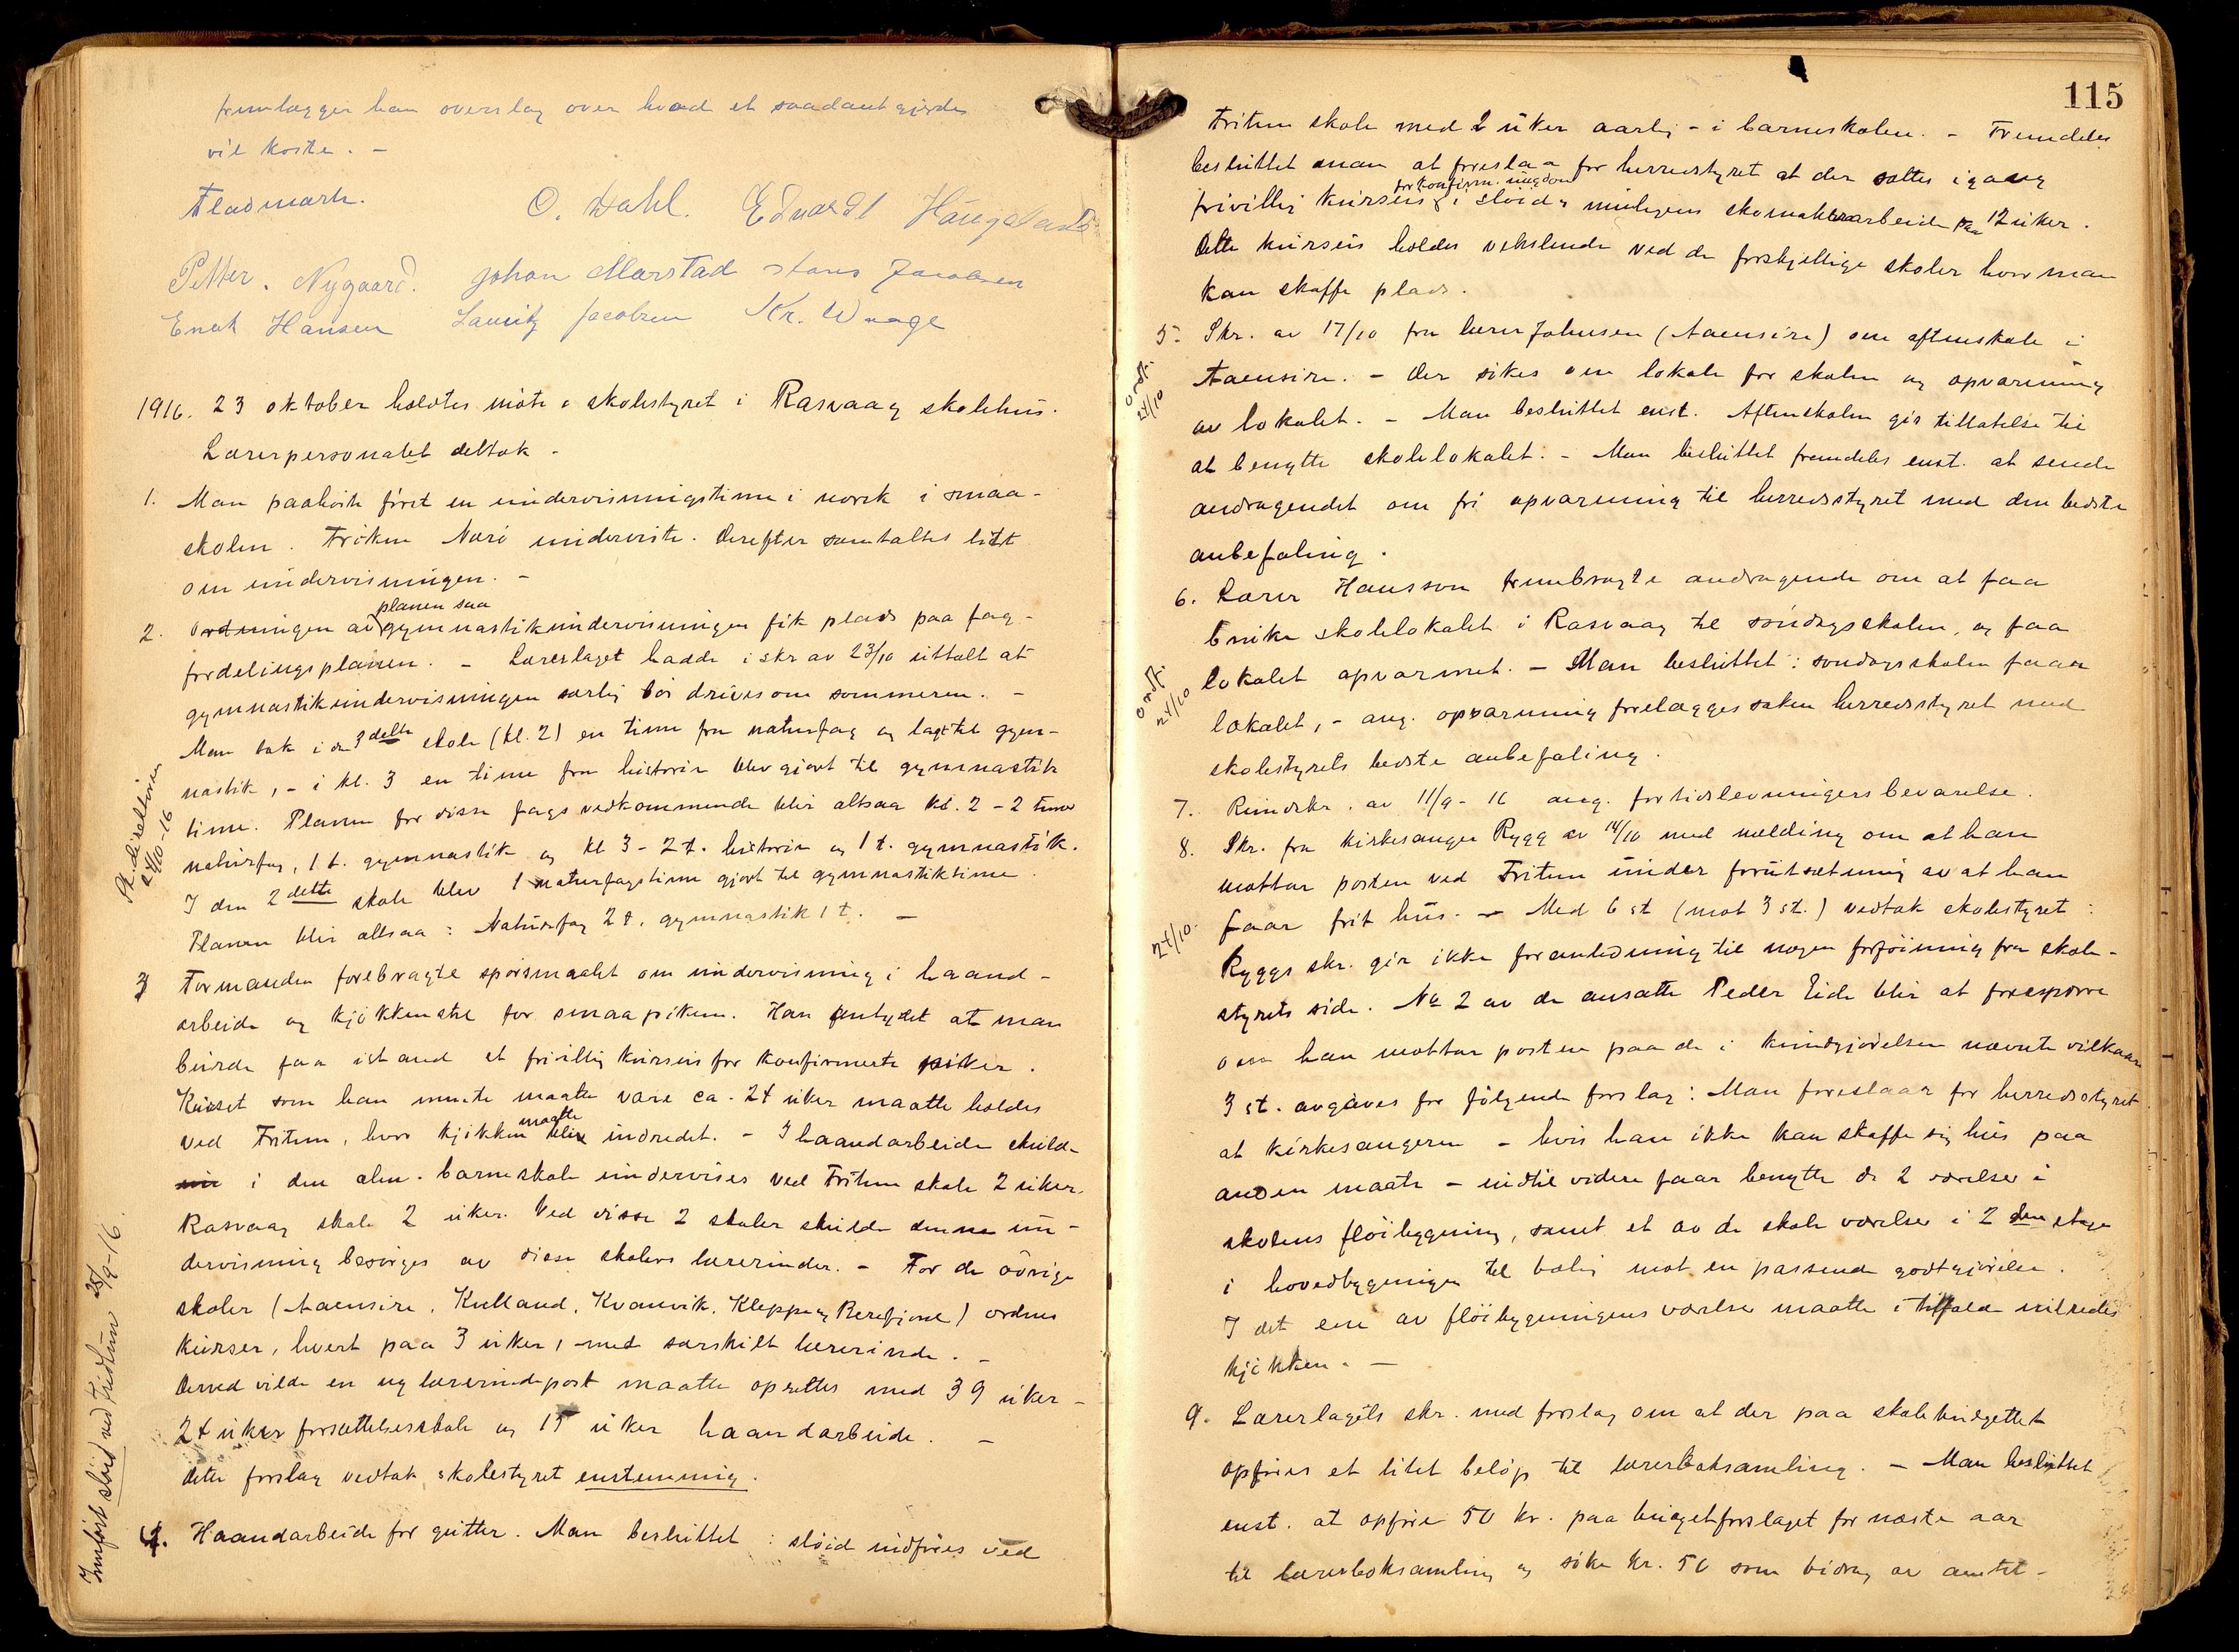 fremlægger han overslag over hvad et saadant gjerde
vil koste. -
Fladmark. O. Dahl. Edvardt Haugeland
Petter. Nygaard. Johan Marstad Jacobsen
Enok Hansen Lauritz Jacobsen Kr. Waage
1916. 23 oktober holdtes møte a skolestyret i Rasvaag skolehus.
Lærerpersonalet deltok -
1. Man paahørte først en undervisningstime i norsk i smaa-
skolen. Frøken underviste. Derefter samtaltes litt
om undervisningen. -
planen saa
2. Ordningen av gymnastikundervisningen fik plads paa fag-
fordelingsplanen. - Lærerlaget hadde i skr av 23/10 uttalt at
gymnastikundervisningen særlig bør drives om sommeren. -
Man tok i den 3 delte skole (kl. 2) en time fra naturfag og lagt til gym-
nastik, - i kl. 3 en time fra historie blev gjort til gymnastik
time. Planen for disse fags vedkommende blir altsaa kl. 2 - 2 timer
naturfag, 1 t. gymnastik og kl 3 - 2 t. historie og 1 t. gymnastik.
I den 2 delte skole blev 1 naturfagstime gjort til gymnastiktime.
Planen blir altsaa: Naturfag 2 t, gymnastik 1 t. -
Sk. direktøren
24/10-16
3 Formanden forebragte spørsmaalet om undervisning i haand-
arbeide og kjøkkenstel for smaapiken. Han antydet at man
burde faa istand et frivillig kursus for konfirmerte piker.
Kurset som han mente maatte være ca. 24 uker maatte holdes
maatte
ved Fritum, hvor kjøkken blir indredet. - I haandarbeide skulde
i den alm. barneskole undervises ved Fritum skole 2 uker,
Rasvaag skole 2 uker. Ved disse 2 skoler skulde denne un-
dervisning besørges av disse skolers lærerinder. - For de øvrige
skoler (Aaensire, Kulland, Kvanvik, Kleppe og Berefjord) ordnes
kurser, hvert paa 3 uker, med særskilt lærerinde. -
Derved vilde en ny lærerindepost maatte oprettes med 39 uker -
24 uker forsættelsesskole og 15 uker haandarbeide. -
dette forslag vedtok skolestyret enstemmig.
4. Haandarbeide for gutter. Man besluttet: sløid indføres ved
Innført sløid ved Fridtun 25/9-16.
115
Fritum skole med 2 uker aarlig - i barneskolen. - Fremdeles
besluttet man at foreslaa for herredstyret at der sættes igang
for konfirm. ungdom
frivillig kursus i sløid og muligens skomakerarbeide paa 12 uker.
Dette kursus holdes vekslende ved de forskjellige skoler hvor man
kan skaffe plads.
5. Skr. av 17/10 fra lærer Johnsen (Aaensire) om aftenskole i
Aaensire. - Der søkes om lokale for skolen og opvarming
av lokalet. - Man besluttet enst. Aftenskolen gis tillatelse til
at benytte skolelokalet. - Man besluttet fremdeles enst. at sende
andragendet om fri opvarming til herredsstyret med den bedste
anbefaling.
ordf.
24/10
6. Lærer Hansson frembragte andragende om at faa
bruke skolelokalet i Rasvaag til søndagsskolen, og faa
lokalet opvarmet. - Man besluttet: søndagsskolen faar
lokalet, - ang. opvarming forelægges saken herredsstyret med
skolestyrets bedste anbefaling.
ordf.
24/10
7. Rundskr. av 11/9-16 ang. fortidslevningers bevarelse.
8. Skr. fra kirkesanger Rygg av 14/10 med melding om at han
mottar posten ved Fritum under forutsætning av at han
faar frit hus. - Med 6 st (mot 3 st.) vedtok skolestyret:
Ryggs skr. gir ikke foranledning til nogen forføining fra skole-
styrets side. No 2 av de ansatte Peder Eide blir at forespørre
om han mottar posten paa de i kundgjørelsen nævnte vilkaar
3 st. avgaves for følgende forslag: Man foreslaar for herredsstyret
at kirkesangeren - hvis han ikke kan skaffe sig hus paa
anden maate - indtil videre faar benytte de 2 værelser i
skolens fløibygning, samt et av de skole værelser i 2 den etage
i hovedbygningen til bolig mot en passende godtgjørelse.
I det ene av fløibygningens værelser maatte i tilfælde indredes
kjøkken. -
24/10.
9. Lærerlagets skr. med forslag om at der paa skolebudgettet
opføres et litet beløp til lærerboksamling. - Man besluttet
enst. at opføre 50 kr. paa budgetforslaget for næste aar
til lærerboksamling og søke kr. 50 som bidrag av amtet -